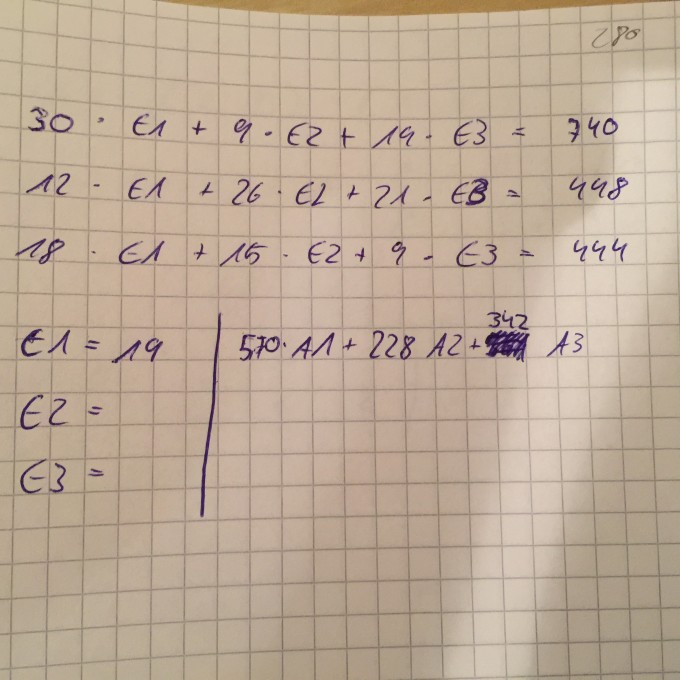 280
30 · E1 + 9 · E2 + 19 · E3 = 740
12 · E1 + 26 · E2 + 21 · E3 = 448
18 · E1 + 15 · E2 + 9 · E3 = 444
E1 = 19
E2 =
E3 =
342
570 · A1 + 228 A2 + A3